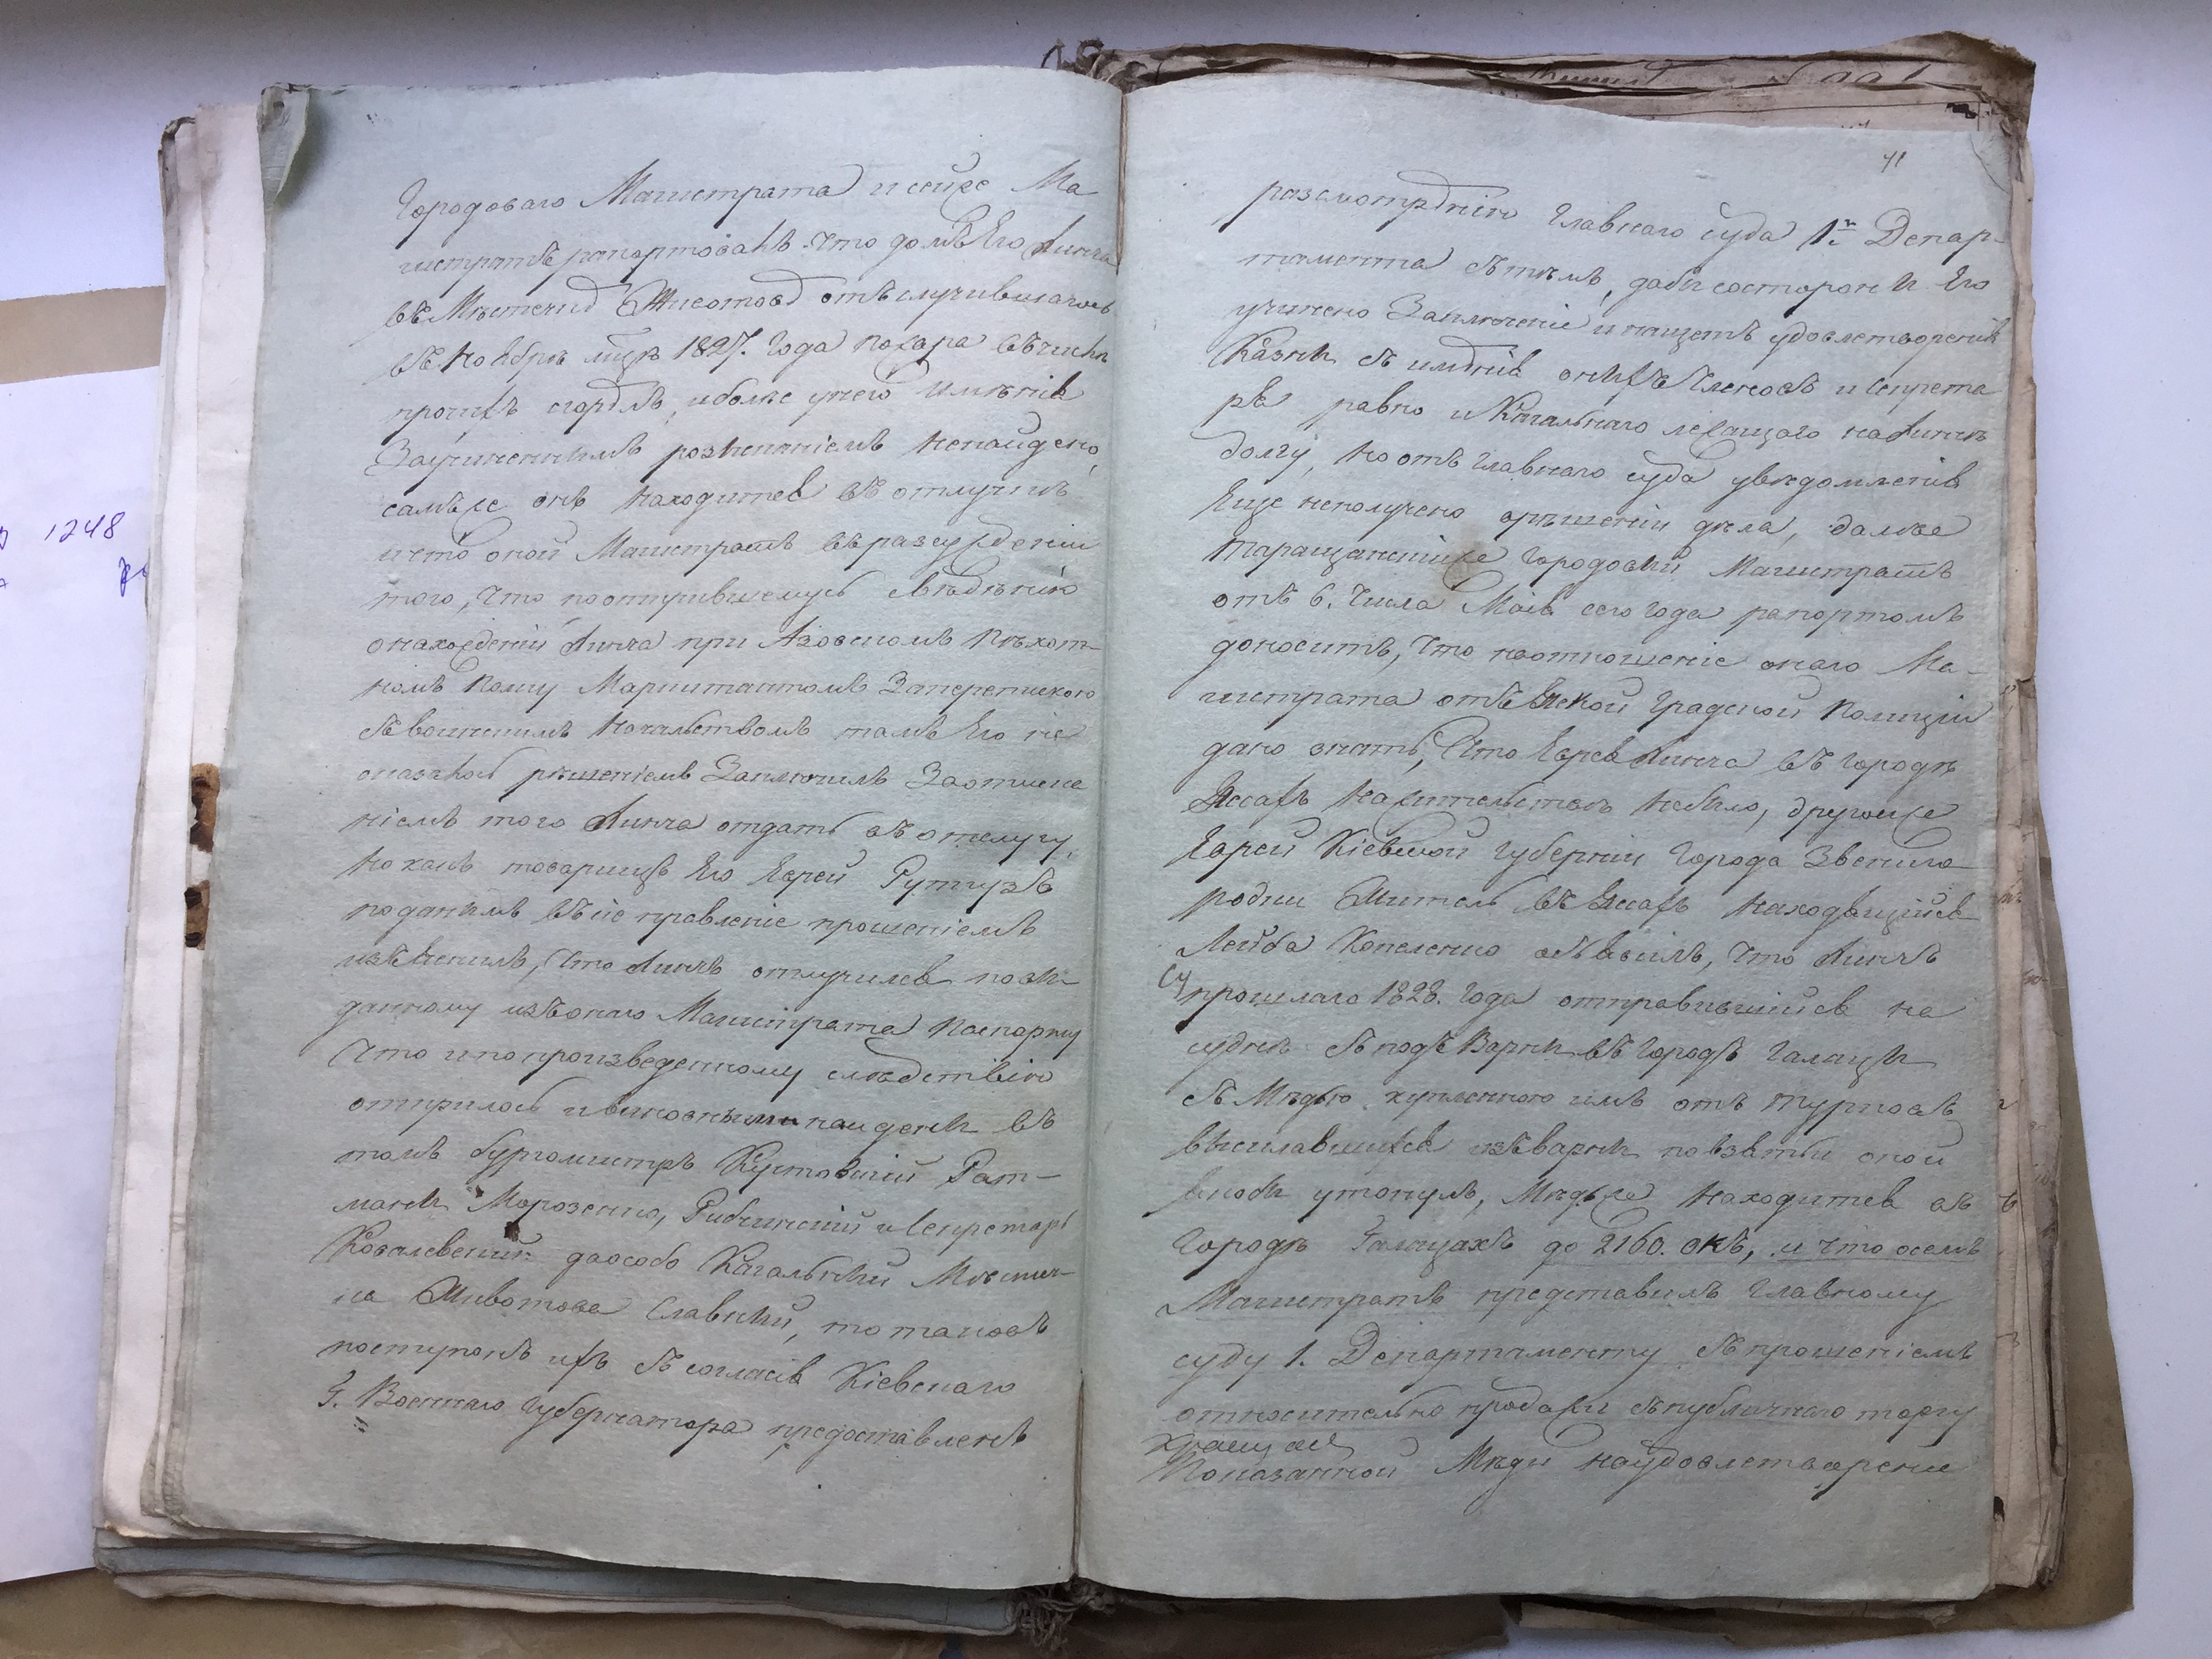 Городоваго Магистрата и сей же Ма
гистратъ рапортовалъ что домъ Его Линча
въ Мѣстечкѣ Животовѣ отъ случившагось
въ Ноябрѣ мцѣ 1827. Года пожара въ числѣ
прочихъ сгорѣлъ, и болѣе у него Имѣнія
За учиненнымъ розысканіемъ ненайдено,
самъ же онъ находится въ отлучкѣ
и что оной Магистратъ въ разсужденіи
того, что по открившемусь свѣденію
о нахожденіи Линча при Азовскомъ Пѣхот-
номъ Полку Маркитантомъ За перепискою
съ воинскимъ Начальствомъ тамъ Его не
оказалось рѣшеніемъ Заключилъ За отыска
ніемъ того Линча отдать въ отслугу,
но какъ товарищъ Его Еврей Рутгузъ
поданымъ въ сіе правленіе прошеніемъ
изъяснилъ, Что Линчъ отлучился по вы
данному изъ онаго Магистрата Паспорту
Что и по произведенному слѣдствію
открилось и виновными найдены въ
томъ бургомистръ Кустовскій Рат-
маны Морозенко, Рибчинскій и Секретарь
Ковалевскій да особо Кагальный Мѣстеч-
ка Животова Славный, то таковъ
поступокъ ихъ съ согласія Кіевскаго
Г. Военнаго Губернатора предоставленъ
41
разсмотрѣнію Главнаго суда 1го Депар-
тамента съ тѣмъ, даби состороны Его
учинено Заключеніе и нащетъ удовлетворенія
Казны съ имѣнія оныхъ Членовъ и Секрета
ря равно и Кагальнаго лежащаго на Линчѣ
долгу, но отъ Главнаго суда увѣдомленія
Еще неполучено о рѣшеніи дѣла, далѣе
Таращанскій же Городовый Магистратъ
отъ 6. Числа Маія сего года рапортомъ
доноситъ, Что на отношеніе онаго Ма-
гистрата отъ Яской Градской Полиціи
дано знать, Что Еврея Линча въ городѣ
Яссахъ на жительствѣ небыло, другой же
Еврей Кіевской Губерніи Города Звениго
родки Житель въ Яссахъ находящійся
Лейба Копеленко объявилъ, Что Линчъ
прошлаго 1828. Года отправившійся на
суднѣ съ подъ Варны въ Городъ Галацы
съ Мѣдью купленною имъ отъ Турковъ
висилавшихся изъ Варны по взятіи оной
вноби утонулъ, Мѣдь же находится въ
Городѣ Галацахъ до 2160. окъ, и что осемъ
Магистратъ представилъ Главному
суду 1. Департаменту съ прошеніемъ
относительно продажи съ публичнаго торгу
Показанной Мѣди на удовлетвореніе
1248